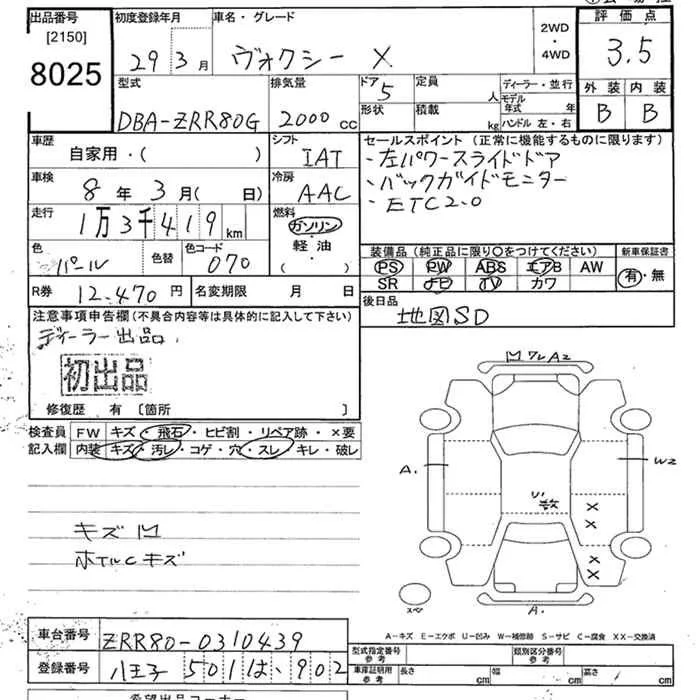 出品番号
[2150]
8025
初度登録年月
29 3月
車名・グレード
ヴォクシー X
2WD
・
4WD
評価点
3.5
外装 内装
B B
型式
DBA-ZRR80G
排気量
2000 CC
ドア
5
形状
定員
人
積載
kg
ディーラー・並行
モデル年式 年
ハンドル 左・右
車歴
自家用・( )
シフト
IAT
車検
8年3月( 日)
冷房
AAC
走行
1万3千419km
燃料
ガソリン
軽油
( )
色
パール
色替
色コード
070
R券 12,470円
名変期限 月 日
セールスポイント (正常に機能するものに限ります)
・左パワースライドドア
・バックガイドモニター
・ETC2.0
装備品 (純正品に限り○をつけてください)
PS PW ABS エアB AW
SR ナビ TV カワ
新車保証書
有・無
後日品
地図SD
注意事項申告欄(不具合内容等は具体的に記入して下さい)
ディーラー出品.
初出品
修復歴 有 [箇所 ]
検査員
記入欄
FW キズ・飛石・ヒビ割・リペア跡・×要
内装 キズ・汚レ・コゲ・穴・スレ・キレ・破レ
キズM
ホイルCキズ
ワレA2
A.
W2
U'
数
×
×
×
×
スペ
A.
A-キズ E-エクボ U-凹み W-補修跡 S-サビ C-腐食 XX-交換済
車台番号
ZRR80-0310439
登録番号
八王子 501 は 902
型式指定番号
参考
類別区分番号
参考
車庫証明用
参考
長さ cm
幅 cm
高さ cm
希望出品コーナー